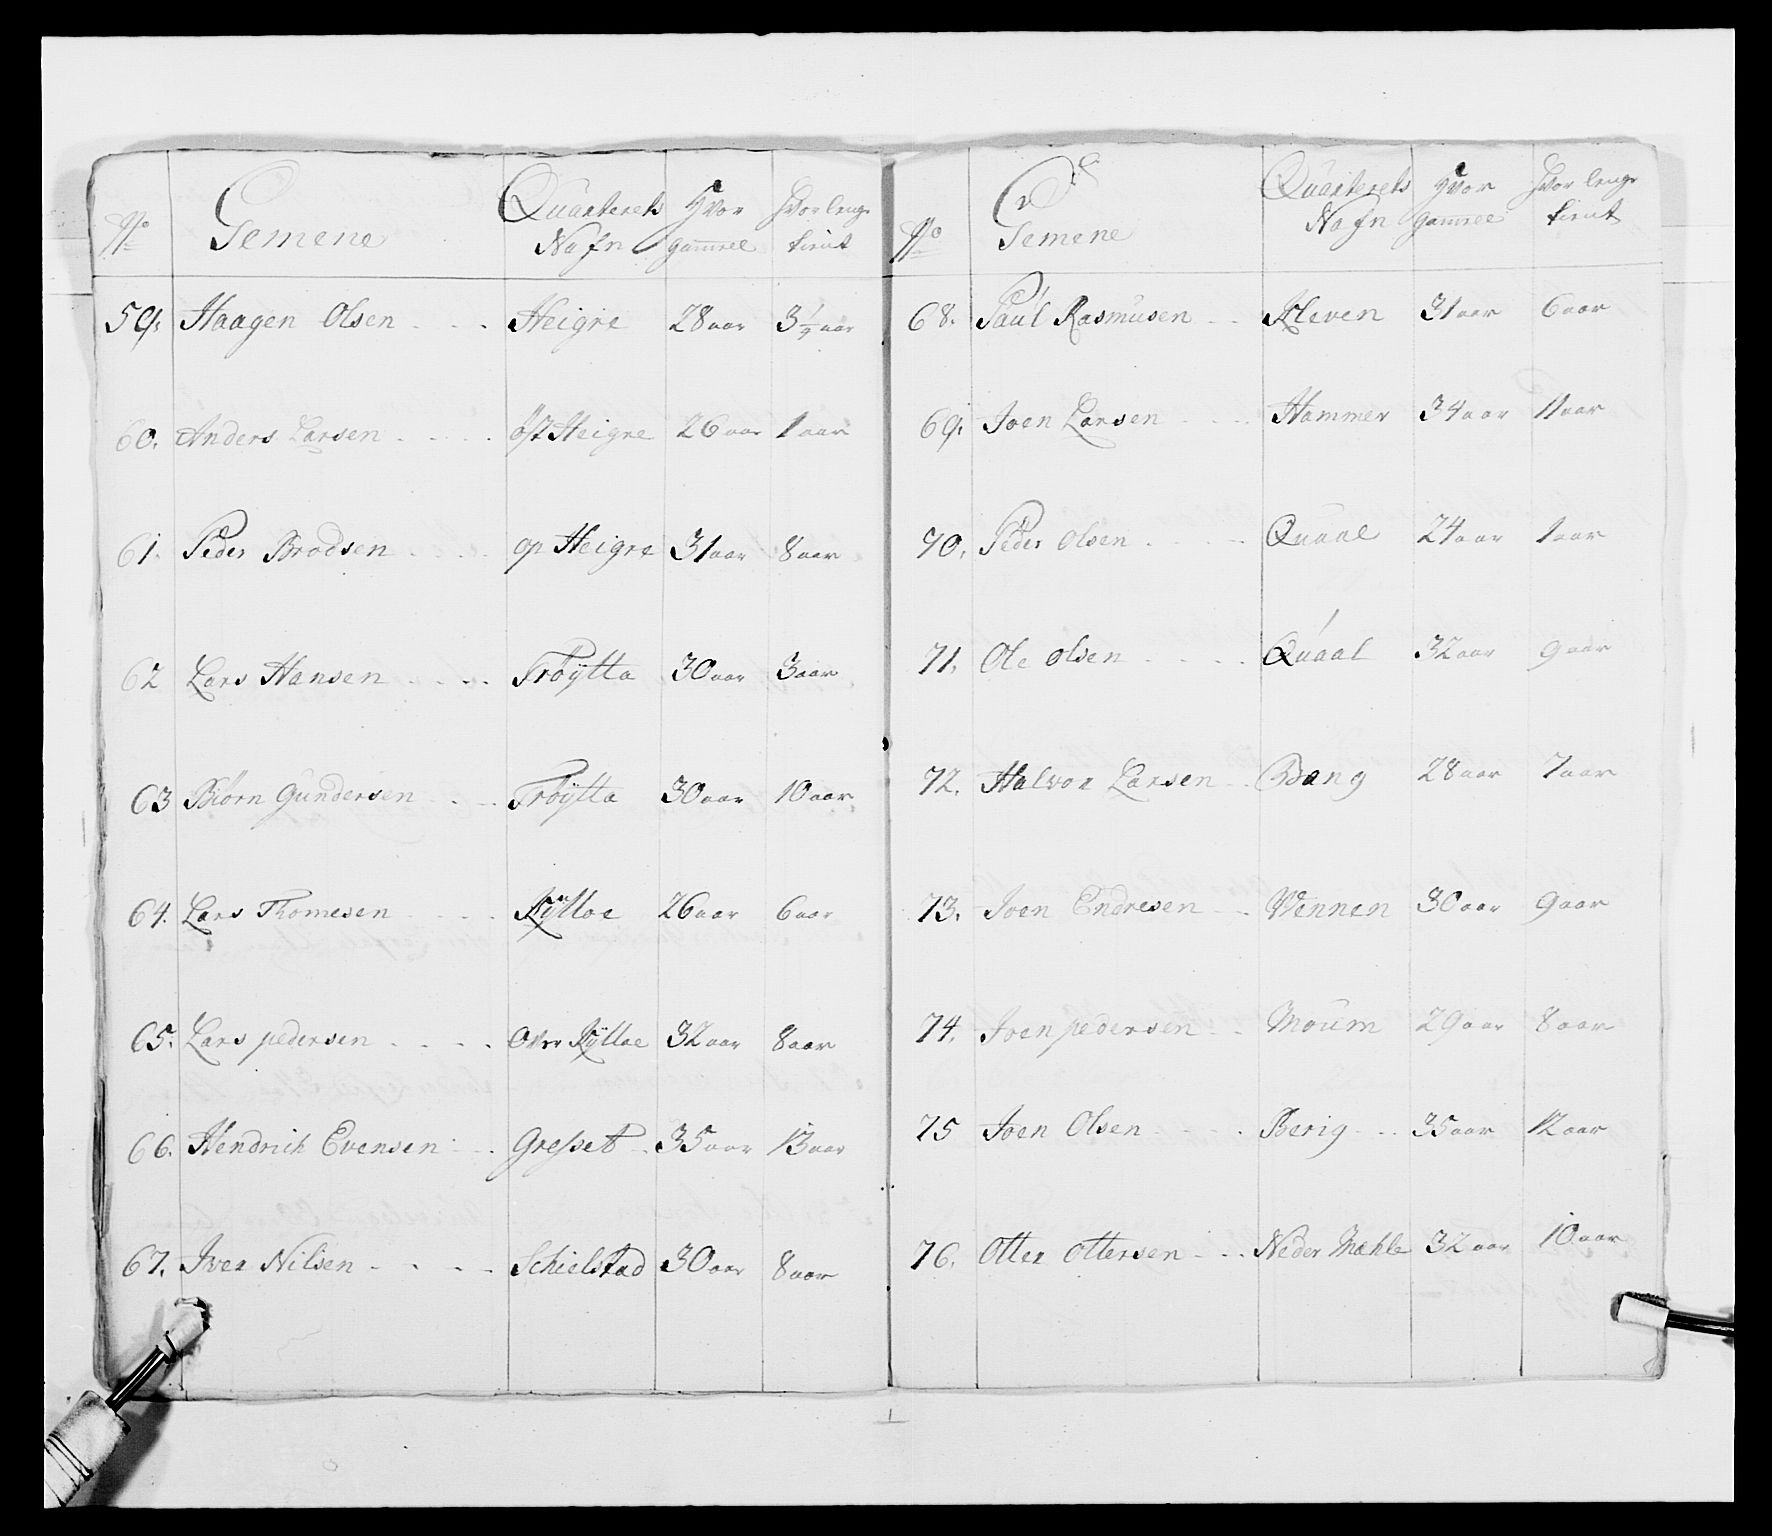 No Gemene Quarterets Nafn Hvor gammel Hvor lenge tient
59. Haagen Olsen Heigre 28 aar 3½ aar
60. Anders Larsen öst Heigre 26 aar 1 aar
61. Peder Brodsen op Heigre 31 aar 8 aar
62 Lars Hansen Tröÿtta 30 aar 3 aar
63 Biörn Gundersen Tröÿtta 30 aar 10 aar
64. Lars Thomesen Kÿlloe 26 aar 6 aar
65. Lars pedersen Over Kÿlloe 32 aar 8 aar
66. Hendrich Evensen Gresset 35 aar 13 aar
67. Iver Nilsen Schielstad 30 aar 8 aar
No Gemene Quarterets Nafn Hvor gammel Hvor lenge tient
68. Paul Rasmusen Kleven 31 aar 6 aar
69. Joen Larsen Hammer 34 aar 11 aar
70. Peder Olsen Quaal 24 aar 1 aar
71. Ole Olsen Quaal 32 aar 9 aar
72. Halvor Larsen Bang 28 aar 7 aar
73. Joen Endresen Wennen 30 aar 9 aar
74. Joen pedersen Moum 29 aar 8 aar
75 Joen Olsen Berig 35 aar 12 aar
76. Otter Ottersen Neder Mæhle 32 aar 10 aar